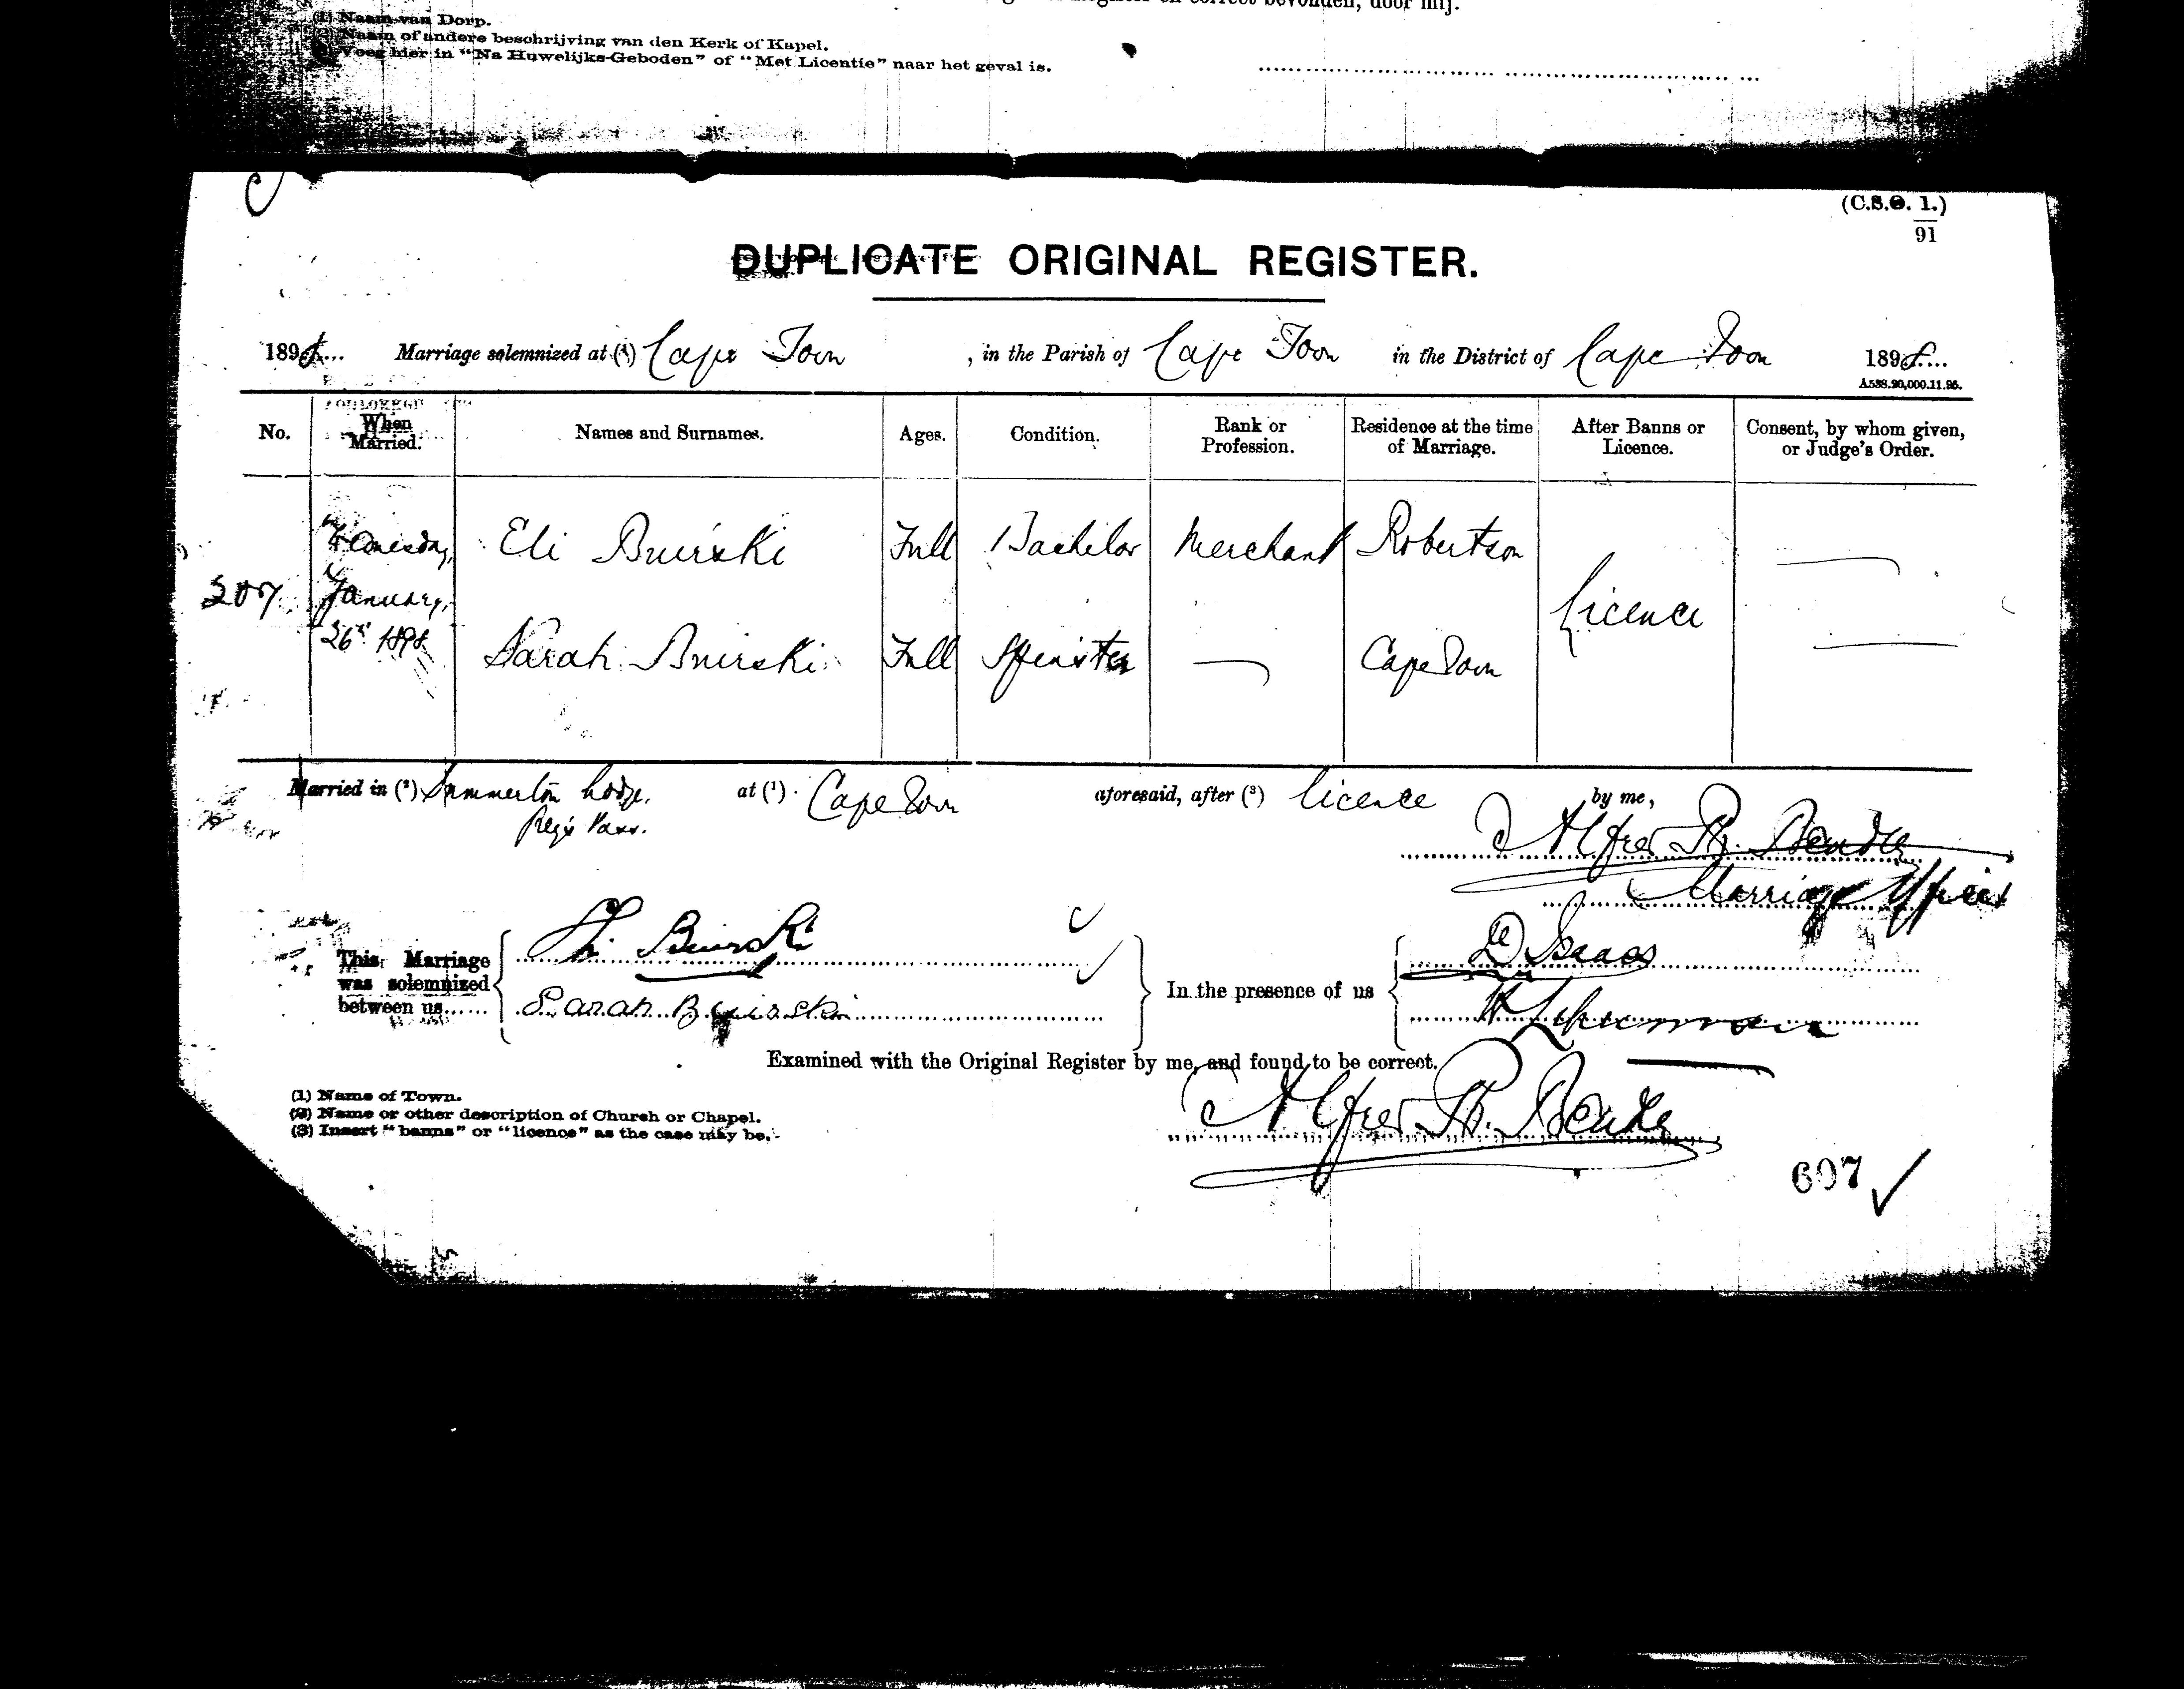 (1) Naam van Dorp.
(2) Naam of andere beschrijving van den Kerk of Kapel.
Voeg hier in "Na Huwelijks-Geboden" of "Met Licentie" naar het geval is.
en correct bevonden, door mij.
(C.S.O. 1.)
91
DUPLICATE ORIGINAL REGISTER.
1898 Marriage solemnized at (1) Cape Town, in the Parish of Cape Town in the District of Cape Town 1898
A538.20,000.11.95.
No. When Married. Names and Surnames. Ages. Condition. Rank or Profession. Residence at the time of Marriage. After Banns or Licence. Consent, by whom given, or Judge's Order.
207 Wednesday, January, 26th 1898
Eli Buirski Full Bachelor Merchant Robertson Licence —
Sarah Buirski Full Spinster — Cape Town —
Married in (2) Summerton Lodge, at (1) Cape Town aforesaid, after (3) licence by me,
Alfred P. Bender
Marriage Officer
This Marriage was solemnized between us
Buirski
Sarah Buirski
In the presence of us
D Isaacs
Examined with the Original Register by me, and found to be correct.
Alfred P. Bender
(1) Name of Town.
(2) Name or other description of Church or Chapel.
(3) Insert "banns" or "licence" as the case may be.
607